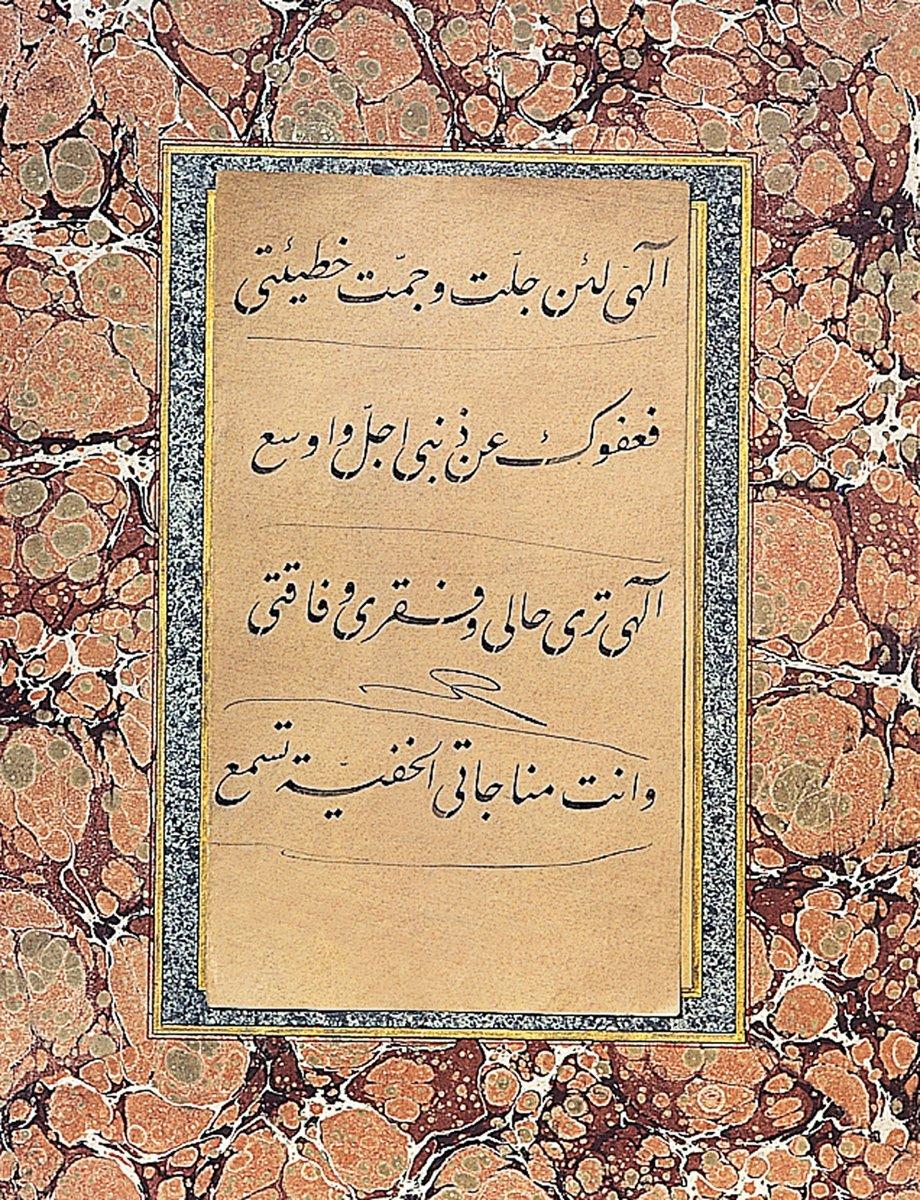 الٓهیَ لئن جلّت وجمّت خطیئتی
فعفوك عن ذنبی اجلّ واوسع
الٓهی تری حالی وفقری وفاقتی
وانت مناجاتی الخفیّة تسمع